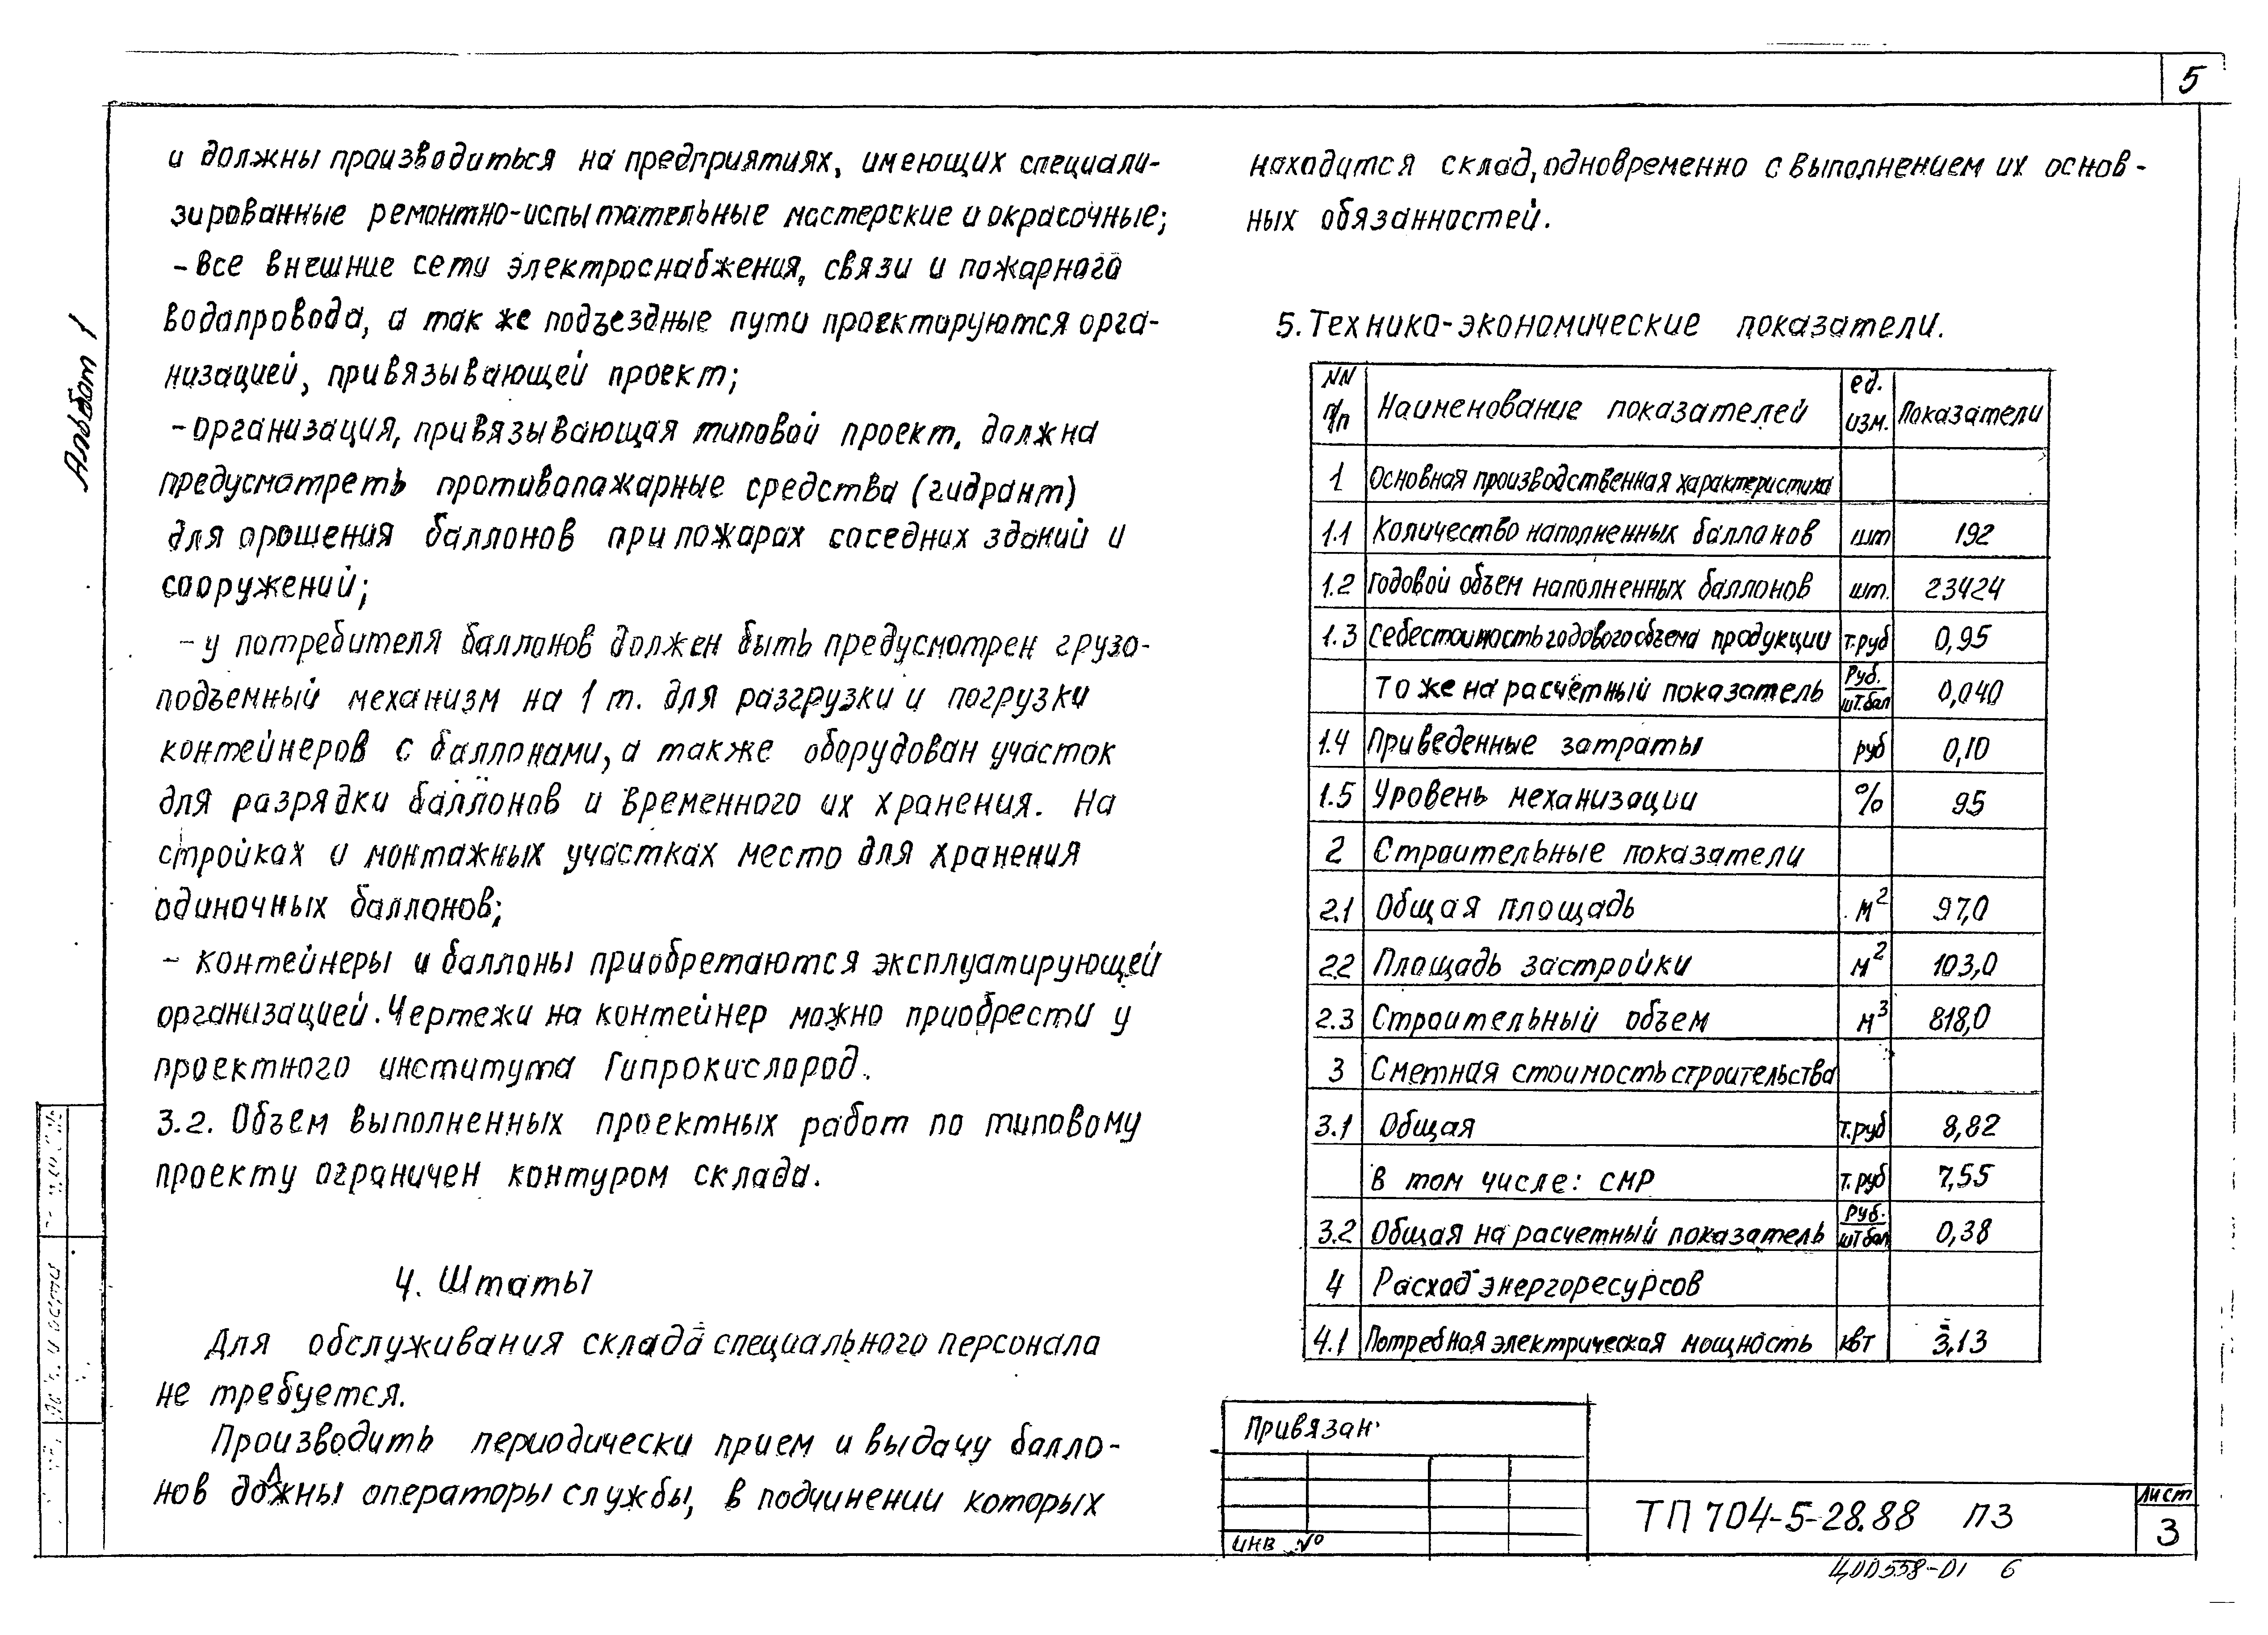 5
Альбом 1
и должны производиться на предприятиях, имеющих специали-
зированные ремонтно-испытательные мастерские и окрасочные;
- все внешние сети электроснабжения, связи и пожарного
водопровода, а так же подъездные пути проектируются орга-
низацией, привязывающей проект;
- организация, привязывающая типовой проект, должна
предусмотреть противопожарные средства (гидрант)
для орошения баллонов при пожарах соседних зданий и
сооружений;
- у потребителя баллонов должен быть предусмотрен грузо-
подъемный механизм на 1 т. для разгрузки и погрузки
контейнеров с баллонами, а также оборудован участок
для разрядки баллонов и временного их хранения. На
стройках и монтажных участках место для хранения
одиночных баллонов;
- контейнеры и баллоны приобретаются эксплуатирующей
организацией. Чертежи на контейнер можно приобрести у
проектного института Гипрокислород.
3.2. Объем выполненных проектных работ по типовому
проекту ограничен контуром склада.
4. Штаты
Для обслуживания склада специального персонала
не требуется.
Производить периодически прием и выдачу балло-
нов должны операторы службы, в подчинении которых
находится склад, одновременно с выполнением их основ-
ных обязанностей.
5. Технико-экономические показатели.
NN п/п Наименование показателей ед. изм. Показатели
1 Основная производственная характеристика
1.1 Количество наполненных баллонов шт 192
1.2 Годовой объем наполненных баллонов шт. 23424
1.3 Себестоимость годового объема продукции т.руб 0,95
То же на расчётный показатель Руб./шт.бал 0,040
1.4 Приведенные затраты руб 0,10
1.5 Уровень механизации % 95
2 Строительные показатели
2.1 Общая площадь м² 97,0
2.2 Площадь застройки м² 103,0
2.3 Строительный объем м³ 818,0
3 Сметная стоимость строительства
3.1 Общая т.руб 8,82
В том числе: СМР т.руб 7,55
3.2 Общая на расчетный показатель Руб./шт бал 0,38
4 Расход энергоресурсов
4.1 Потребная электрическая мощность квт 3,13
Привязан:
ИНВ №
ТП 704-5-28.88 ПЗ
Лист
3
Ц00558-01 6